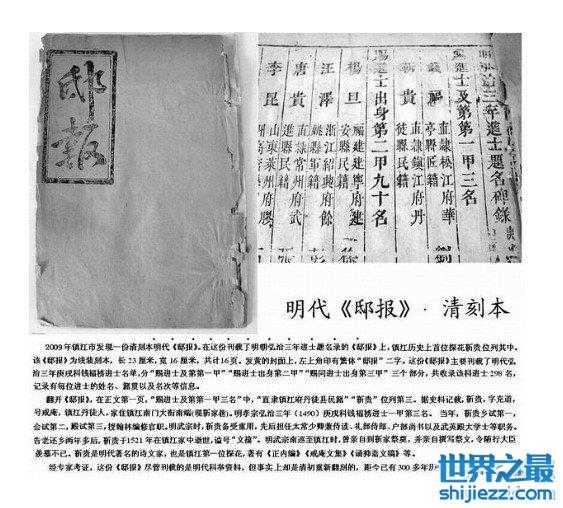 邸報
治三年進士題名碑錄
賜進士及第第一甲三名
錢福 直隸松江府華
亭縣匠籍
靳貴 直隸鎮江府丹
徒縣民籍
賜進士出身第二甲九十名
楊旦 福建建寧府建
安縣民籍
汪澤 浙江紹興府餘
姚縣軍籍
唐貴 直隸常州府武
進縣民籍
李昆 山東萊州府膠
明代《邸报》·清刻本
2009年镇江市发现一份清刻本明代《邸报》。在这份刊载了明朝弘治三年进士题名录的《邸报》上，镇江历史上首位探花靳贵位列其中。
该《邸报》为线装刻本，长23厘米，宽16厘米，共计16页。发黄的封面上，左上角印有繁体“邸报”二字，这份《邸报》主要刊载了明代弘
治三年庚戌科钱福榜进士名单，分“赐进士及第第一甲”“赐进士出身第二甲”“赐同进士出身第三甲”三个部分，共收录该科进士298名，
记录有每位进士的姓名、籍贯以及名次等信息。
翻开《邸报》，在正文第一页，“赐进士及第第一甲三名”中，“直隶镇江府丹徒县民籍”“靳贵”位列第三。据史料记载，靳贵，字充道，
号戒庵，镇江丹徒人，家住镇江南门大街南端(现靳家巷)。明孝宗弘治三年（1490）庚戌科钱福榜进士一甲第三名。当年，靳贵乡试第一，
会试第二，殿试第三，授翰林编修官职。明武宗时，靳贵备受重用，先后担任太常少卿兼侍读、礼部侍郎、户部尚书以及武英殿大学士等职务。
告老还乡两年多后，靳贵于1521年在镇江家中逝世，谥号“文僖”。明武宗南巡至镇江时，曾亲自到靳家祭奠，并亲自撰写祭文，令随行大臣
羡慕不已。靳贵是明代著名的诗文家，也是镇江第一位探花，著有《正内编》《戒庵文集》《诵抑斋文稿》等。
经专家考证，这份《邸报》尽管刊载的是明代科举资料，但事实上却是清初重新翻刻的，距今已有300多年
世界之最
shijiezz.com